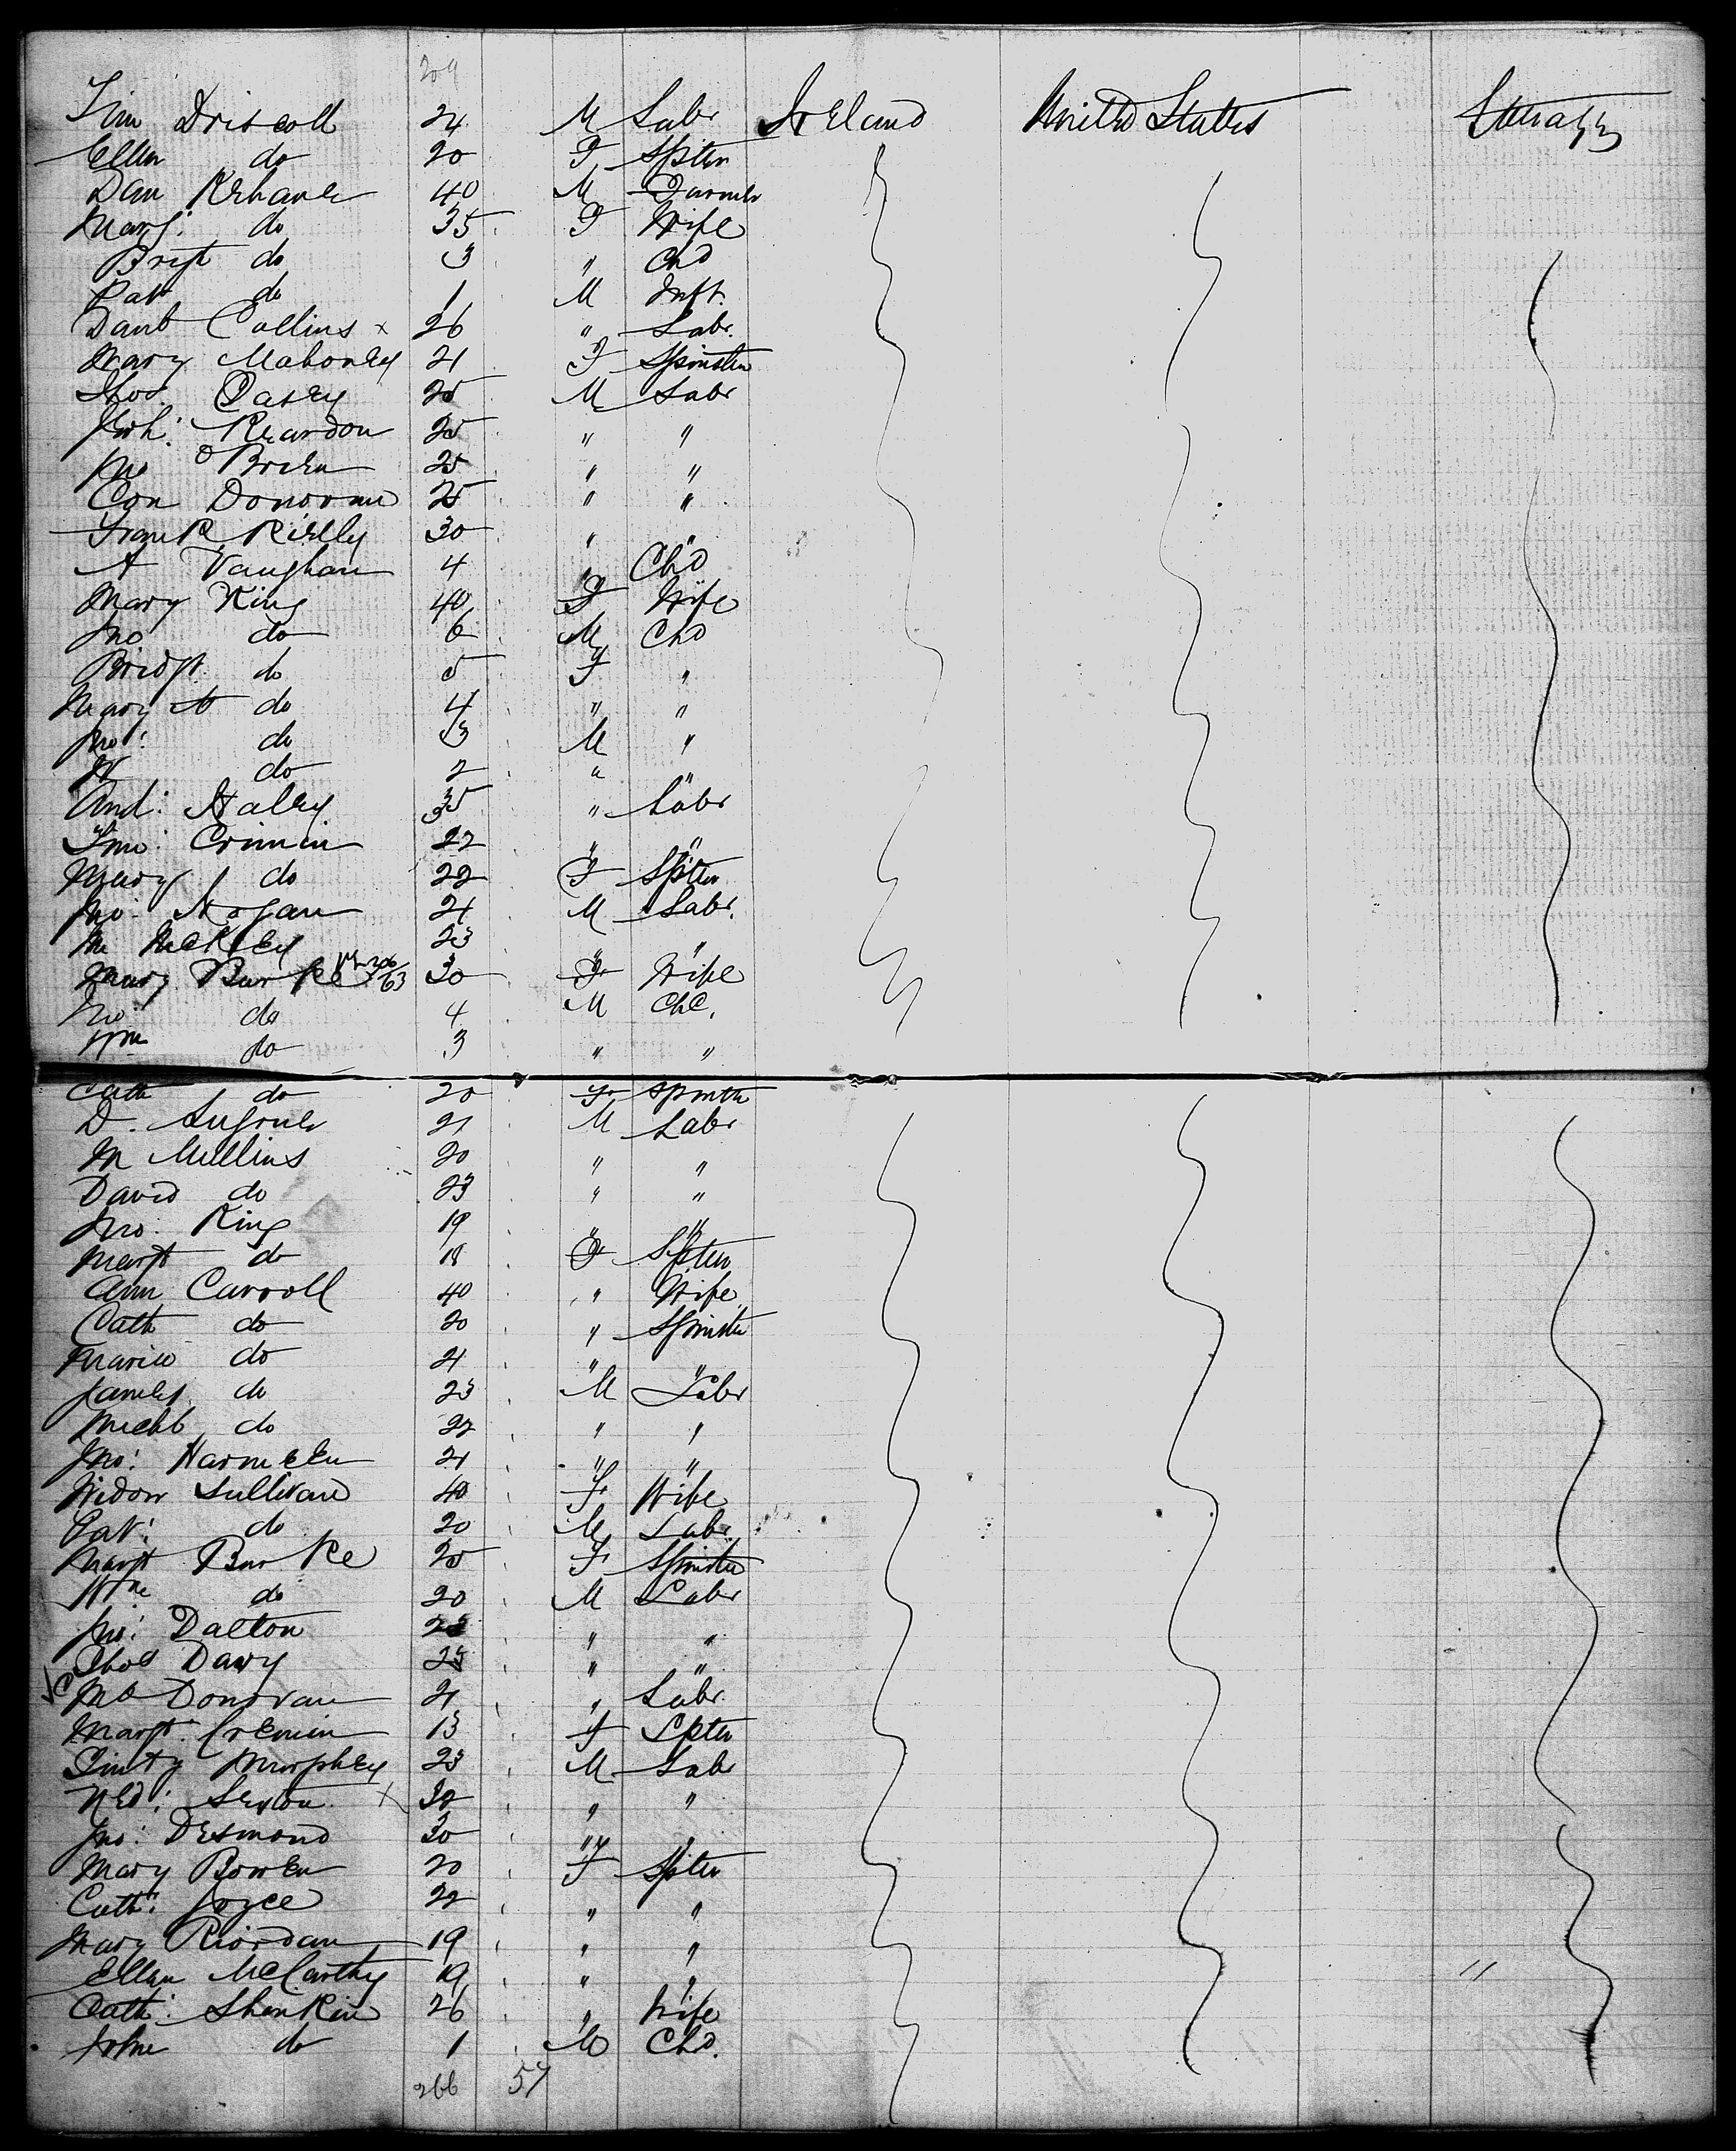 209
Tim Driscoll 24 M Labr Ireland United States Steerage
Ellen do 20 F Spster
Dan Kehane 40 M Farmer
Marg: do 35 F Wife
Brigt do 3 " Chd
Pat do 1 M Inft.
Danl Collins x 26 " Labr.
Mary Mahoney 21 F Spinster
Thos. Casey 25 M Labr
Reardon 25 " "
Jno O'Brien 25 " "
Con Donovan 25 " "
Frank Rielly 30 " "
A Vaughan 4 " Chd
Mary King 40 F Wife
Jno do 6 M Chd
Bridgt. do 5 F "
Mary A do 4 " "
Jno: do 3 M "
W do 2 " "
And: Haley 35 " Labr
Crimin 22 " "
Mary do 22 F Spster
Jno: Hogan 21 M Labr.
M 23 " "
Mary Burke 30 F Wife
Jno: do 4 M Chd.
Wm do 3 " "
Cath do 20 F Spinster
D. Sugrue 21 M Labr
M Mullins 20 " "
David do 23 " "
Jno. King 19 " "
Margt do 18 F Spster
Ann Carroll 40 " Wife
Cath do 20 " Spinster
Maria do 21 " "
James do 23 M Labr
Michl do 22 " "
Jno: 21 " "
Widow Sullivan 40 F Wife
Pat: do 20 M Labr.
Margt Burke 25 F Spinster
Wm do 20 M Labr
Jno: Dalton " "
Thos Davy 25 " "
Donovan 21 " Labr.
Margt. Cremin 13 F Spster
Timty Murphey 23 M Labr
Ned: Sexton x 32 " "
Jno: Desmond 30 " "
Mary Bowen 20 F Spster
Cath: Joyce 22 " "
Mary Riordan 19 " "
Ellen McCarthy 19 " "
Cath: Shinkin 26 " Wife
John do 1 M Chd.
266 57